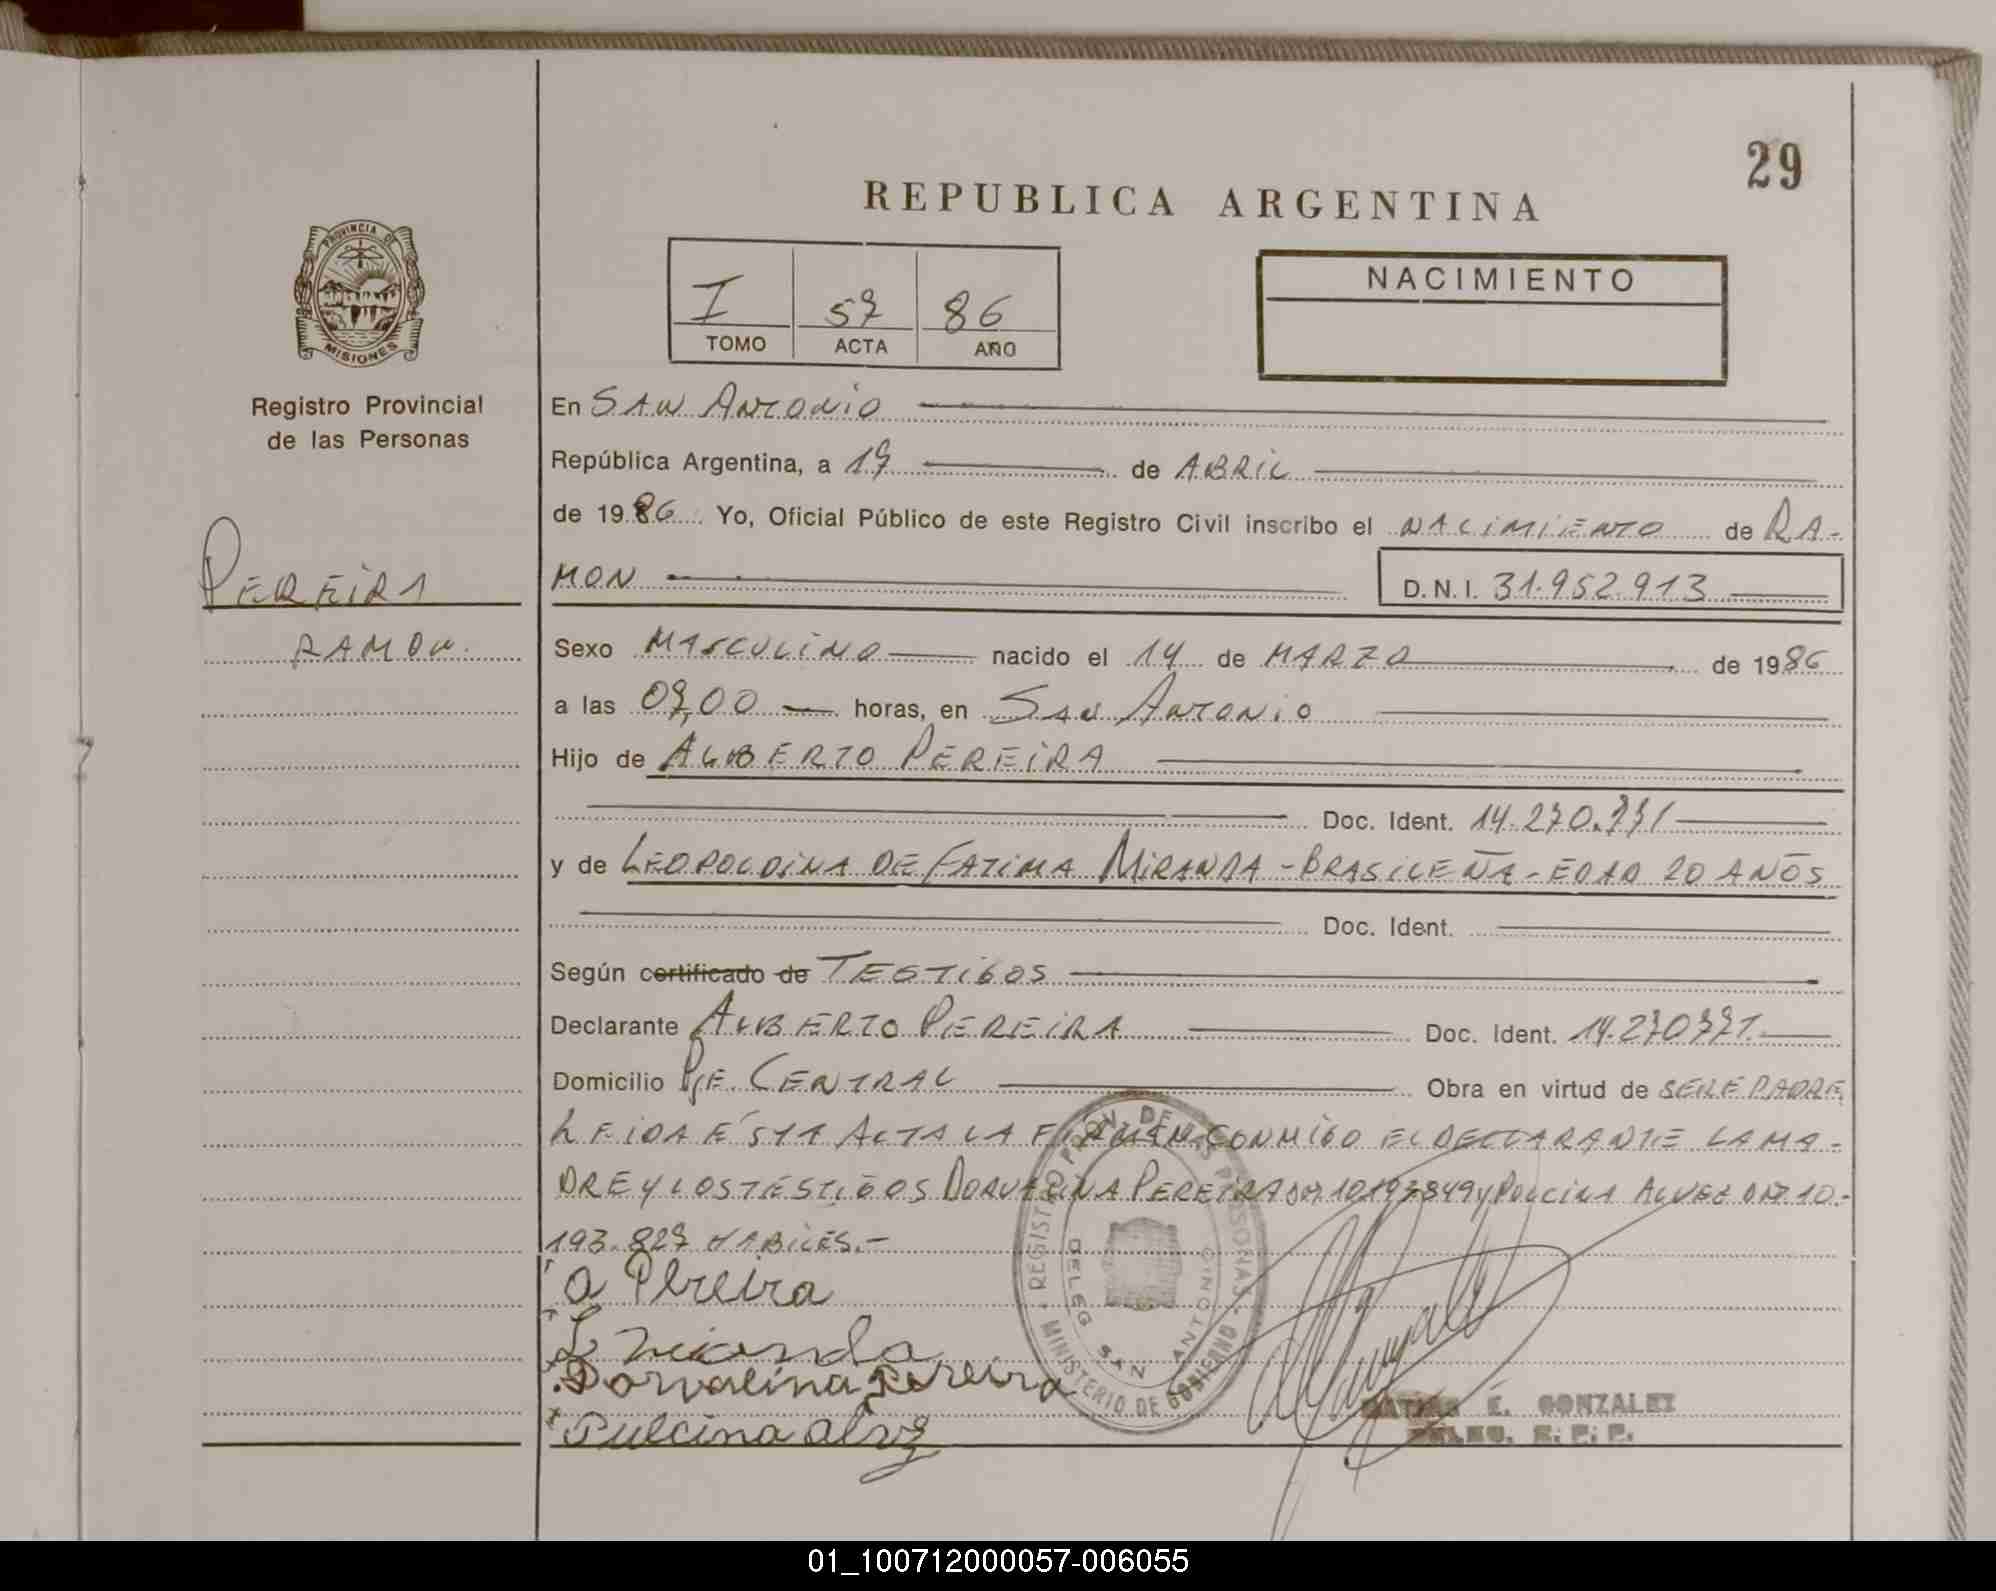 29
REPUBLICA ARGENTINA
PROVINCIA DE
MISIONES
Registro Provincial
de las Personas
PEREIRA
RAMON.
I 57 86
TOMO ACTA AÑO
NACIMIENTO
En SAN ANTONIO
República Argentina, a 17 de ABRIL
de 1986 Yo, Oficial Público de este Registro Civil inscribo el NACIMIENTO de RA-
MON D.N.I. 31.952.913
Sexo MASCULINO nacido el 14 de MARZO de 1986
a las 07,00 horas, en SAN ANTONIO
Hijo de ALBERTO PEREIRA
Doc. Ident. 14.270.771
y de LEOPOLDINA DE FATIMA MIRANDA - BRASILEÑA - EDAD 20 AÑOS
Doc. Ident.
Según certificado de TESTIGOS
Declarante ALBERTO PEREIRA Doc. Ident. 14.270771.
Domicilio Pje. CENTRAL Obra en virtud de SER EL PADRE
LEIDA ÉSTA ACTA LA FIRMAN CONMIGO EL DECLARANTE LA MA-
DRE Y LOS TESTIGOS DORVALINA PEREIRA 10197849 y PULCINA ALVEZ DNI 10.-
193.827 HABILES.-
a Pereira
L Miranda
Dorvalina Pereira
Pulcina alvez
REGISTRO PROV. DE LAS PERSONAS
MINISTERIO DE GOBIERNO
DELEG SAN ANTONIO
E. GONZALEZ
R. P. P.
01_100712000057-006055